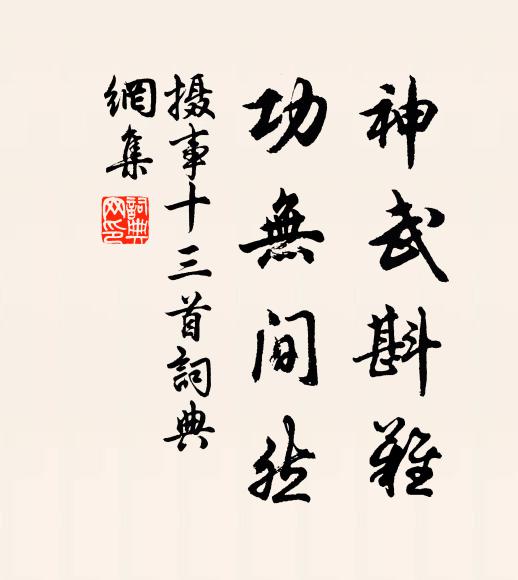 神武斟難
功無間然
摄事十三首詞典
網集
詞典网印